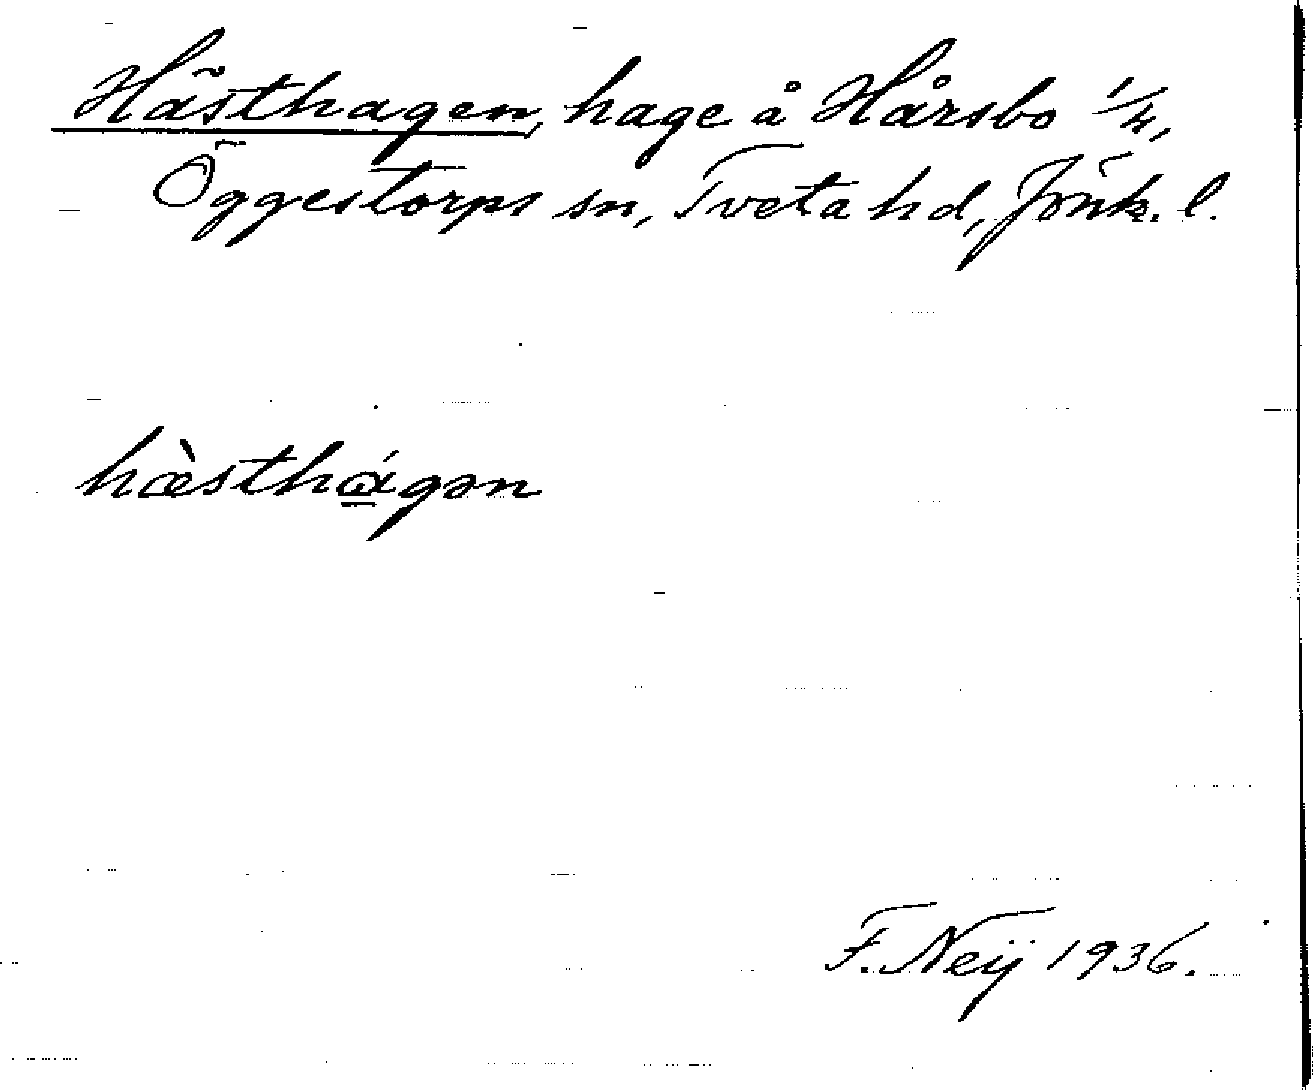 Hästhagen, hage å Hårsbo 1/4,
Öggestorps sn, Tveta hd, Jönk. l.
hæ̀sthɑ́gən
F. Neij 1936.